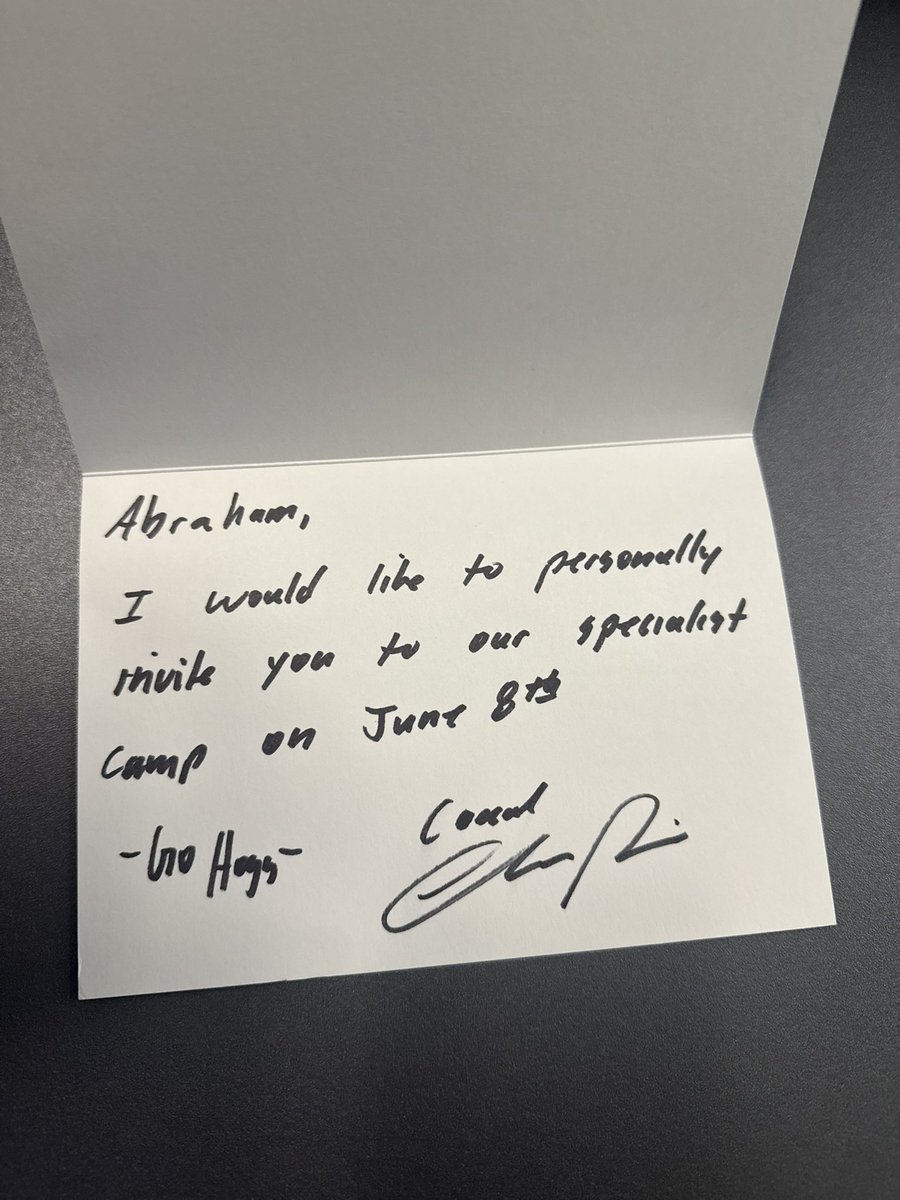 Abraham,
I would like to personally
invite you to our specialist
camp on June 8th
-Go Hogs-
Coach